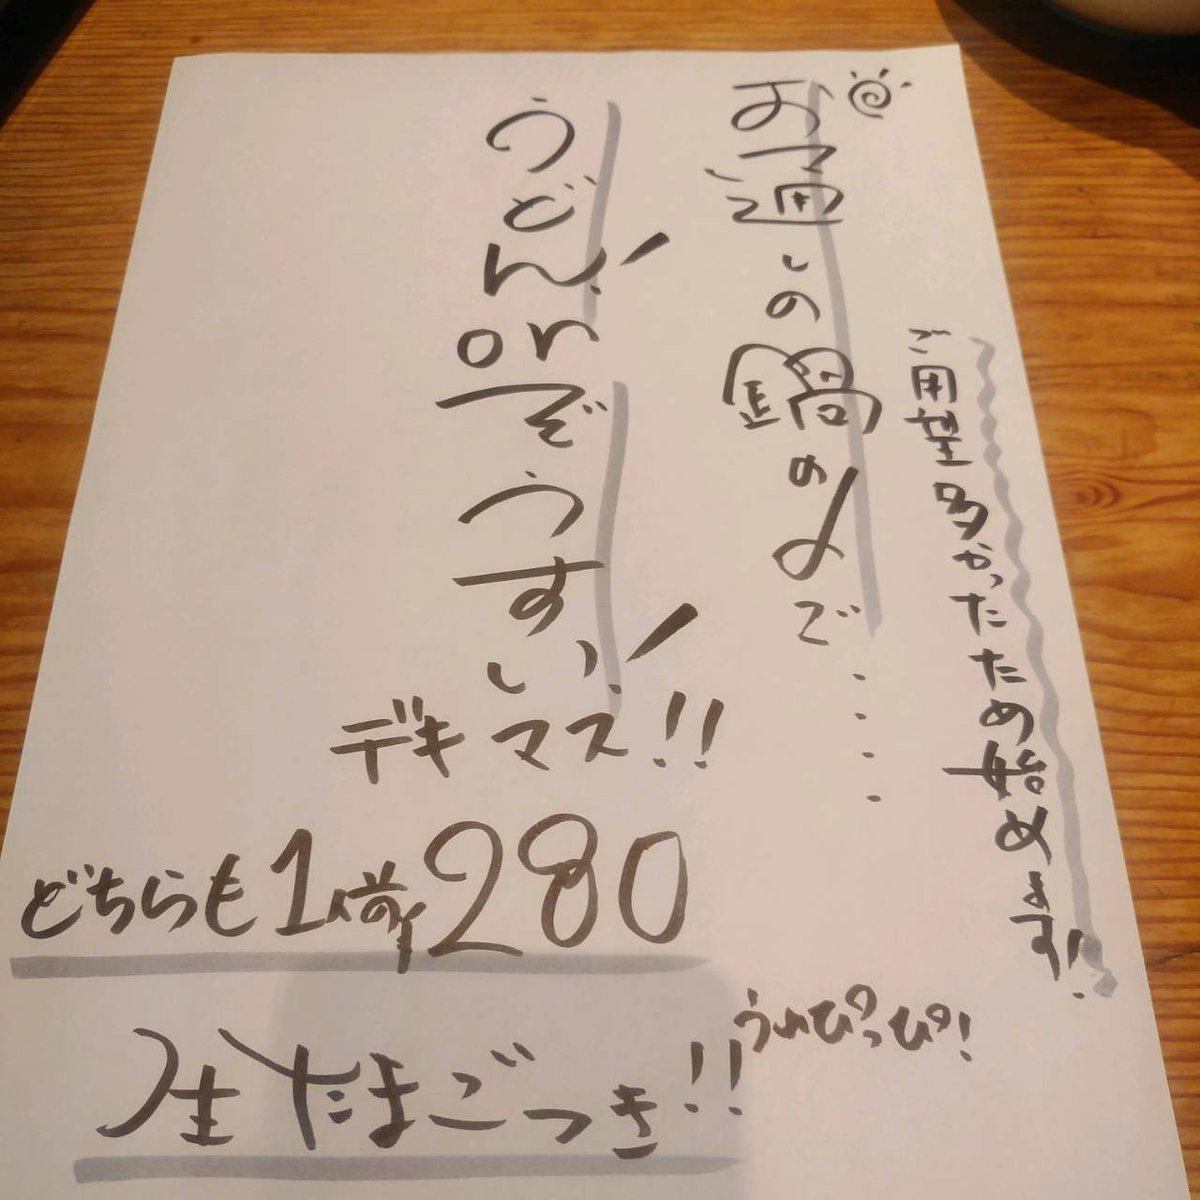 ご用望多かったため始めます!
お通しの鍋の〆で・・・・
うどん!orぞうすい!
デキマス!!
どちらも1人前280
生たまごつき!!
うめぴっぴ!